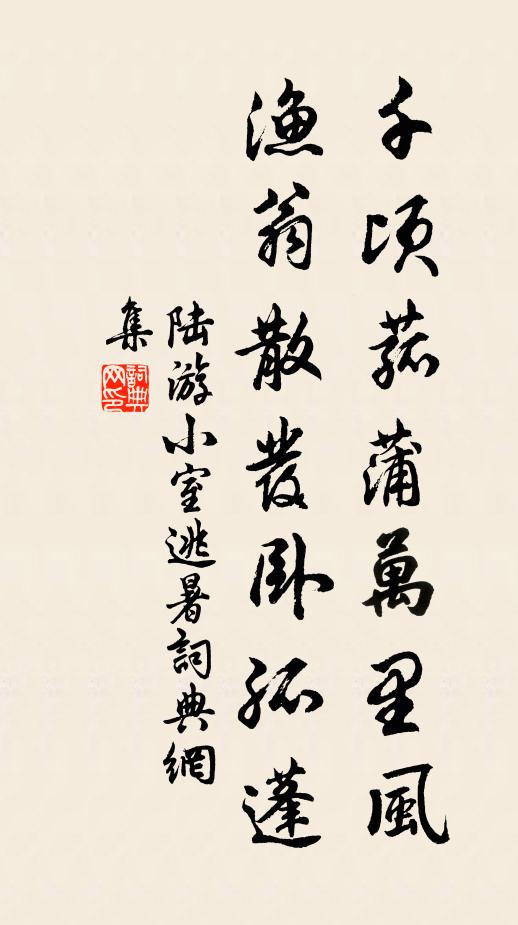 千頃菰蒲萬里風
漁翁散發臥孤蓬
陸游小室逃暑詞典網
集
詞典
网印